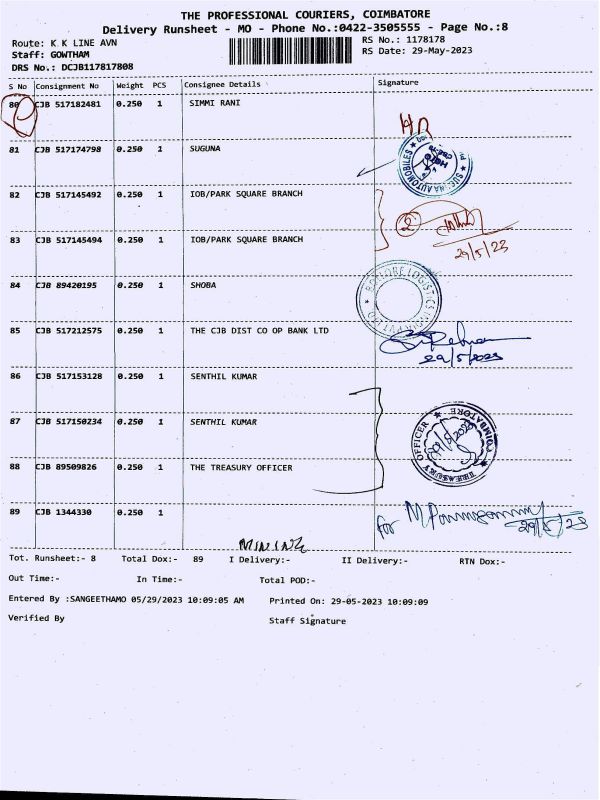 THE PROFESSIONAL COURIERS, COIMBATORE
Delivery Runsheet - MO - Phone No.:0422-3505555 - Page No.:8
Route: K.K LINE AVN
RS No.: 1178178
Staff: GOWTHAM
RS Date: 29-May-2023
DRS No.: DCJB117817808
S No Consignment No Weight PCS Consignee Details Signature
80 CJB 517182481 0.250 1 SIMMI RANI
81 CJB 517174798 0.250 1 SUGUNA
82 CJB 517145492 0.250 1 IOB/PARK SQUARE BRANCH
2
83 CJB 517145494 0.250 1 IOB/PARK SQUARE BRANCH
29/5/23
84 CJB 89420195 0.250 1 SHOBA
85 CJB 517212575 0.250 1 THE CJB DIST CO OP BANK LTD
29/5/2023
86 CJB 517153128 0.250 1 SENTHIL KUMAR
87 CJB 517150234 0.250 1 SENTHIL KUMAR
TREASURY OFFICER COIMBATORE
88 CJB 89509826 0.250 1 THE TREASURY OFFICER
89 CJB 1344330 0.250 1
for
29/5/23
MINING
Tot. Runsheet:- 8 Total Dox:- 89 I Delivery:- II Delivery:- RTN Dox:-
Out Time:- In Time:- Total POD:-
Entered By :SANGEETHAMO 05/29/2023 10:09:05 AM Printed On: 29-05-2023 10:09:09
Verified By Staff Signature